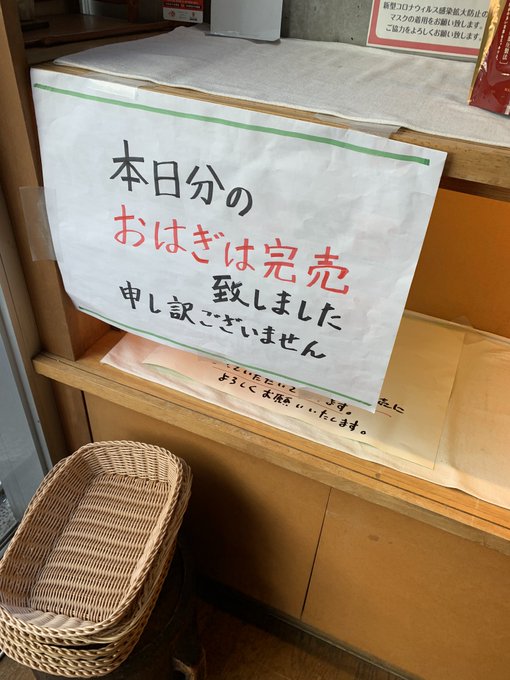 新型コロナウィルス感染拡大防止の
マスクの着用をお願い致します。
ご協力をよろしくお願い致します。
本日分の
おはぎは完売
致しました
申し訳ございません
ていただいて
ます。
よろしくお願いいたします。